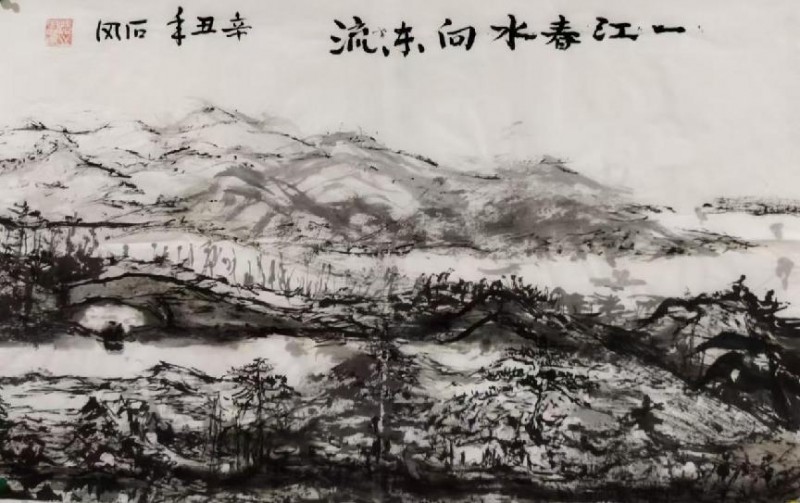 一江春水向东流
辛丑年 石风